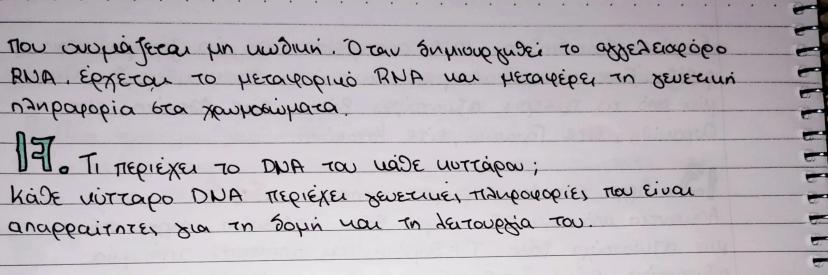 που ονομάζεται μη κωδική. Όταν δημιουργηθεί το αγγελειαφόρο
RNA, έρχεται το μεταφορικό RNA και μεταφέρει τη γενετική
πληραφορία στα χρωμοσώματα.
17. Τι περιέχει το DNA του κάθε κυττάρου;
Κάθε κύτταρο DNA περιέχει γενετικές πληροφορίες που είναι
απαρραίτητες για τη δομή και τη λειτουργία του.